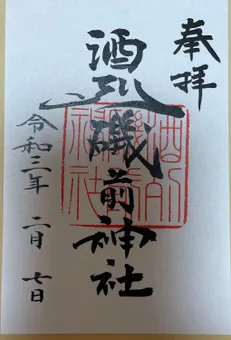 奉拝
酒列磯前神社
令和三年 二月 七日
酒列
磯前
神社